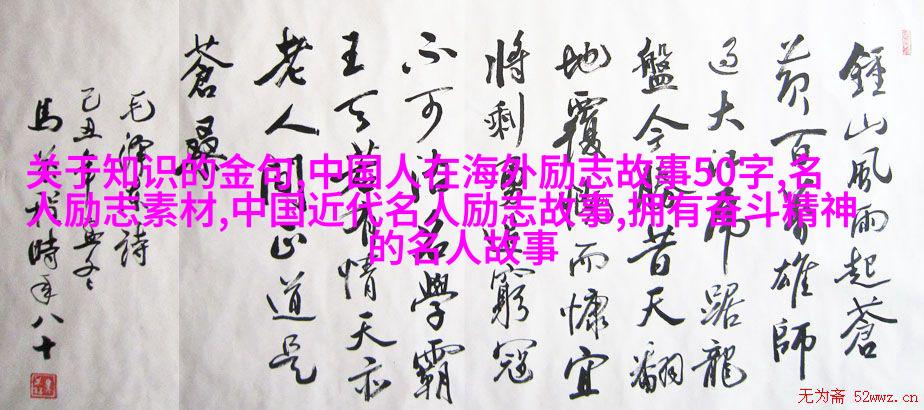 鍾山風雨起蒼
黄百万雄師
过大江虎踞龍
盤今勝昔天翻
地覆慨而慷宜
将剩勇追窮寇
不可沽名學霸
王天若有情天亦
老人间正道是
蒼桑
毛澤東詩
己丑年冬
馬時年八十
关于知识的金句,中国人在海外励志故事50字,名
人励志素材,中国近代名人励志故事,拥有奋斗精神
的名人故事
无为斋 52wwz.cn